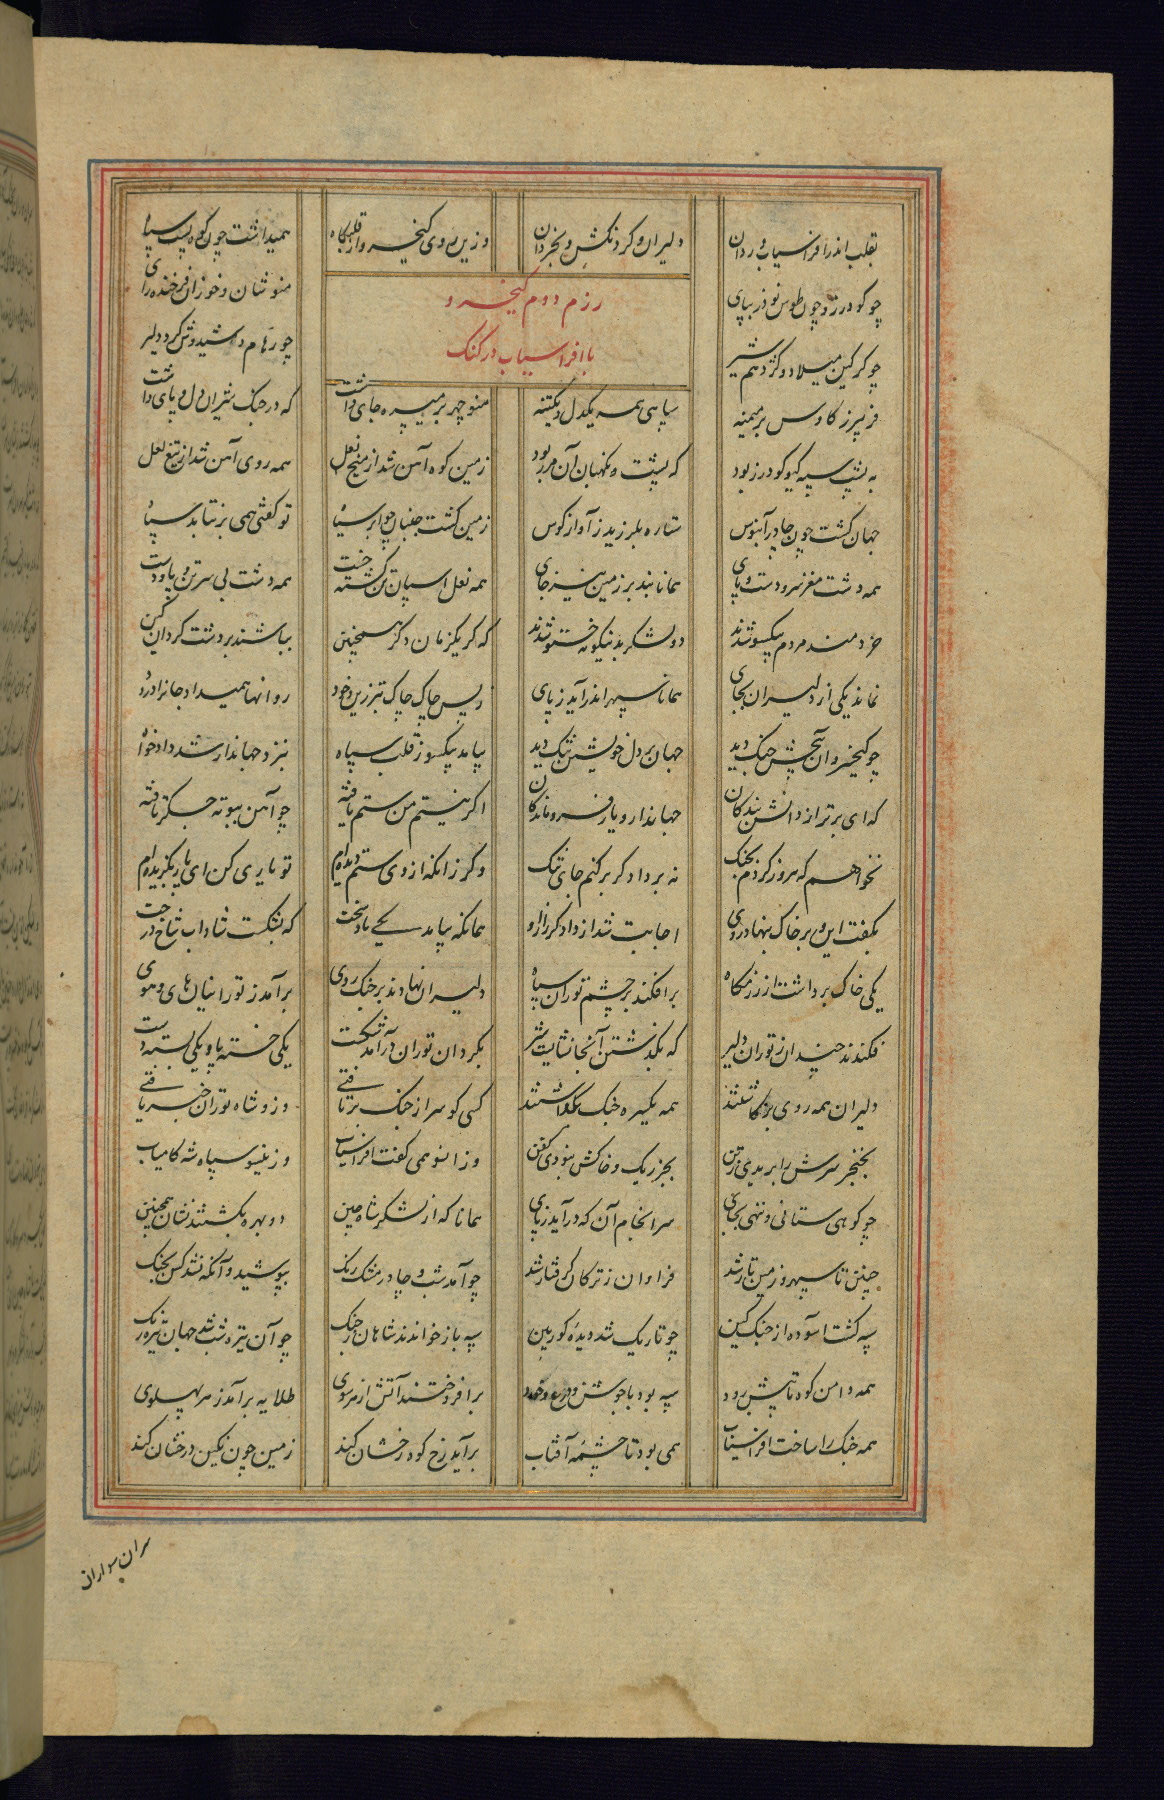 بقلب اندر افراسیاب و ردان
دلیران و گردنکش و بخردان
وزین روی کیخسرو از قلبگاه
همیداشت چون کوه پشت سپاه
رزم دوم کیخسرو
با افراسیاب در کنک
چو گودرز و چون طوس نوذر بپای
منوشان و خوزان فرخنده رای
چو گرگین میلاد و گژدهم شیر
چو رهام و شیدوش گرد دلیر
فریبرز کاوس بر میمنه
سپاهی همه یکدل و یکتنه
منوچهر بر میسره جای داشت
که در جنگ شیران دل و پای داشت
به پشت سپه گیو گودرز بود
که پشت و نگهبان آن مرز بود
زمین کوه آهن شد از میخ نعل
همه روی آهن شد از تیغ لعل
جهان گشت چون چادر آبنوس
ستاره بلرزید ز آواز کوس
زمین گشت جنبان چو ابر سیاه
تو گفتی همی برنتابد سپاه
همه دشت مغز سر و دست و پای
همانا نبد بر زمین نیز جای
همه نعل اسپان تن کشته خست
همه دشت بی سر تن و پا و دست
خردمند مردم بیکسو شدند
دو لشکر بدینگونه خستو شدند
که گر یک زمان دگر همچنین
بباشند بر دشت گردان کین
نماند یکی از دلیران بجای
همانا سپهر اندر آید ز پای
ز پس چاک چاک تبرزین و خود
روانها همیداد جانرا درود
چو کیخسرو آن پیچش جنگ دید
جهان بر دل خویشتن تنگ دید
بیامد بیکسو ز قلب سپاه
بنزد جهاندار شد دادخواه
که ای برتر از دانش بندگان
جهاندار و یار فروماندگان
اگر نیستم من ستم یافته
چو آهن ببوته جگر تافته
نخواهم که پیروز گردم بجنگ
نه بر دادگر بر کنم جای تنگ
وگر زانکه از وی ستم دیده‌ام
تو یاری کن ای یار بگزیده‌ام
بگفت این و بر خاک بنهاد روی
اجابت شد از دادگر راز او
همانگه بیامد یکی باد سخت
که بشکست شاداب شاخ درخت
یکی خاک برداشت از رزمگاه
برافکند بر چشم توران سپاه
دلیران نهادند بر جنگ روی
برآمد ز تورانیان های و هوی
فکندند چندان ز توران دلیر
که بگذشتن آنجا نشایست شیر
بگردان توران درآمد شکست
یکی خسته پا و یکی بسته دست
دلیران همه روی برگاشتند
همه یکسره جنگ بگذاشتند
کسی کو سر از جنگ برتافتی
وزو شاه توران خبر یافتی
بخنجر سرش را بریدی ز تن
بجز ریگ و خاکش نبودی کفن
وزانسو همی گفت افراسیاب
وزینسو سپاه شه کامیاب
چو کوهی ستانی و ننهی بجای
سرانجام آن که درآید ز پای
همانا که از لشکر شاه چین
دو بهره بکشتند شان همچنین
چنین تا سپهر و زمین تار شد
فراوان ز ترکان گرفتار شد
چو آمد شب و چادر مشک رنگ
بپوشید و آنگه نشد کس بجنگ
سپه گشت آسوده از جنگ و کین
چو تاریک شد دیده کور بین
سپه باز خواندند شاهان ز جنگ
چو آن تیره شب شد جهان تیره رنگ
همه دامن کوه تا پیش رود
سپه بود با جوشن و درع و خود
برافروختند آتش از هر سوی
طلایه برآمد ز هر پهلوی
همه جنگ را ساخت افراسیاب
همی بود تا چشمه آفتاب
برآید رخ کوه رخشان کند
زمین چون نگین درخشان کند
سران سواران